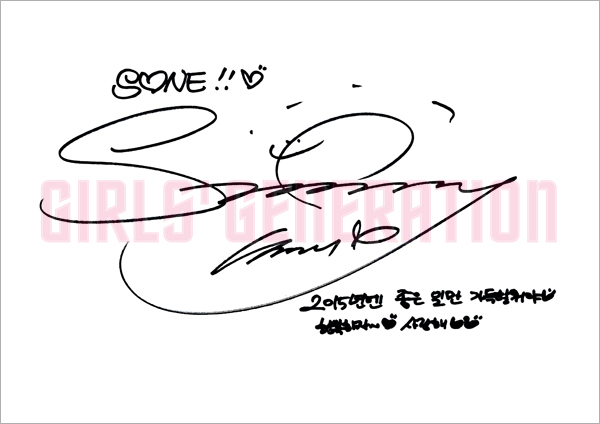 SONE!!
GIRLS' GENERATION
2015년엔 좋은 일만 가득할거야
행복하자~ 사랑해